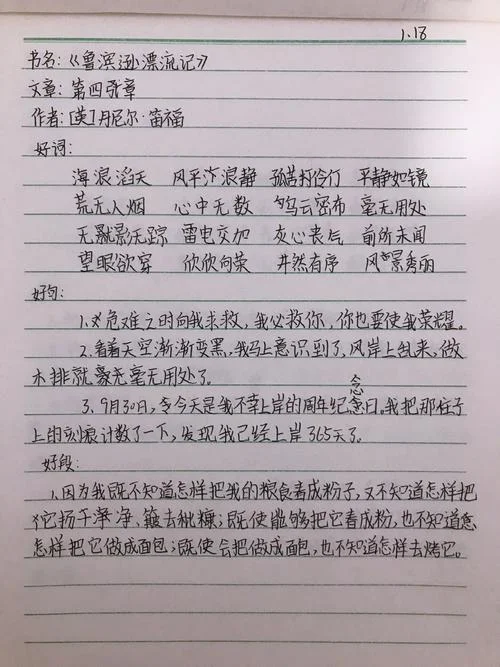 1.18
书名:《鲁滨逊漂流记》
文章:第四张章
作者:[英]丹尼尔·笛福
好词:
海浪滔天 风平浪静 孤苦伶仃 平静如镜
荒无人烟 心中无数 乌云密布 毫无用处
无影无踪 雷电交加 灰心丧气 前所未闻
望眼欲穿 欣欣向荣 井然有序 风景秀丽
好句:
1.危难之时向我求救,我必救你,你也要使我荣耀。
2.看着天空渐渐变黑,我马上意识到了,风岸上乱来,做
木排就毫无用处了。
3.9月30日,今天是我不幸上岸的周年纪念日。我把那柱子
上的刻痕计数了一下,发现我已经上岸365天了。
好段:
1.因为我既不知道怎样把我的粮食舂成粉子,又不知道怎样把
它扬干净、簸去秕糠;既使能够把它舂成粉,也不知道
怎样把它做成面包;既使会把做成面包,也不知道怎样去烤它。